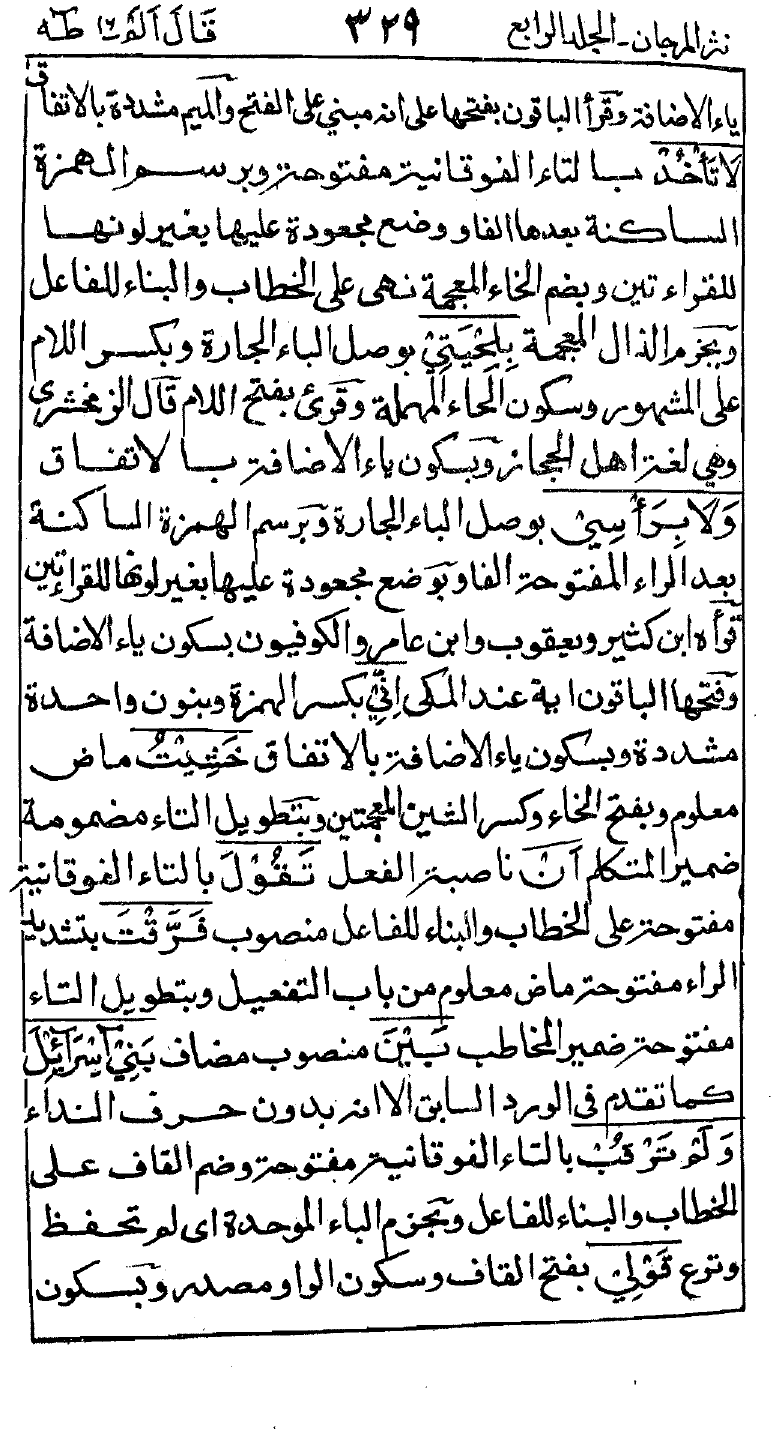 نثر المرجان ـ الجلد الرابع ٣٢٩ قَالَ اَلَمْ ١٦ طٰهٰ
ياء الاضافة وقرأ الباقون بفتحها على انه مبني على الفتح والميم مشددة بالاتفاق
لَا تَأْخُذْ بالتاء الفوقانية مفتوحة وبرسم الهمزة
الساكنة بعدها الفا ووضع مجعودة عليها بغير لونها
للقراءتين وبضم الخاء المعجمة نهى على الخطاب والبناء للفاعل
وبجزم الذال المعجمة بِلِحْيَتِيْ بوصل الباء الجارة وبكسر اللام
على المشهور وسكون الحاء المهملة وقرئ بفتح اللام قال الزمخشري
وهي لغة اهل الحجاز وبسكون ياء الاضافة بالاتفاق
وَلَا بِرَأْسِيْ بوصل الباء الجارة وبرسم الهمزة الساكنة
بعد الراء المفتوحة الفا وبوضع مجعودة عليها بغير لونها للقراءتين
قرأه ابن كثير ويعقوب وابن عامر والكوفيون بسكون ياء الاضافة
وفتحها الباقون اية عند المكى اِنِّيْ بكسر الهمزة وبنون واحدة
مشددة وبسكون ياء الاضافة بالاتفاق خَشِيْتُ ماض
معلوم وبفتح الخاء وكسر الشين المعجمتين وبتطويل التاء مضمومة
ضمير المتكلم اَنْ ناصبة الفعل تَقُوْلَ بالتاء الفوقانية
مفتوحة على الخطاب والبناء للفاعل منصوب فَرَّقْتَ بتشديد
الراء مفتوحة ماض معلوم من باب التفعيل وبتطويل التاء
مفتوحة ضمير المخاطب بَيْنَ منصوب مضاف بَنِيْ اِسْرَائِيْلَ
كما تقدم فى الورد السابق الا انه بدون حرف النداء
وَلَمْ تَرْقُبْ بالتاء الفوقانية مفتوحة وضم القاف على
الخطاب والبناء للفاعل وبجزم الباء الموحدة اى لم تحفظ
وترع قَوْلِيْ بفتح القاف وسكون الواو مصدر وبسكون